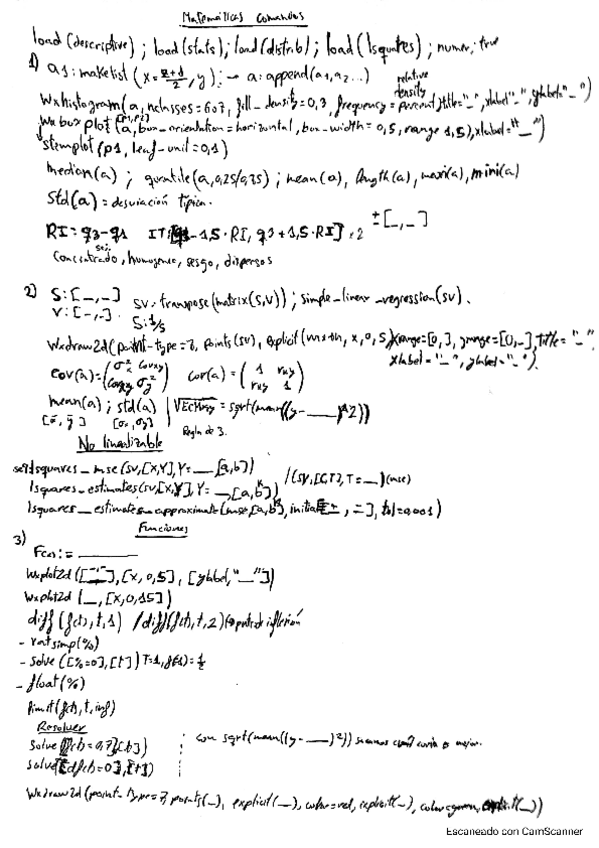 Matemáticas comandos
load(descriptive) ; load(stats) ; load(distrib) ; load(lsquares) ; numer, true
1) a1: makelist (x=    /2, y) ; → a: append(a1, a2...)
relative density
wxhistogram(a, nclasses=6o7, fill_density=0,3, frequency=percent, title="_", xlabel="_", ylabel="_")
[p1,p2]
wxboxplot (a, box_orientation=horizontal, box_width=0,5, range 1,5), xlabel="_")
stemplot (p1, leaf_unit=0,1)
median(a) ; quantile(a,0,25/0,75) ; mean(a), length(a), maxi(a), mini(a)
std(a) = desviación típica.
RI = q3-q1 IT: [q1-1,5·RI, q3+1,5·RI] ×2 ±[_,_]
Concentrado, homogeneo, sesgo, dispersos
2) S:[_,_] sv: transpose(matrix(s,v)) ; simple_linear_regression(sv).
V:[_,_].
S:1/s
wxdraw2d(point_type=7, points(sv), explicit(mx+n, x, 0, 5), xrange=[0,], yrange=[0,_], title="_"
xlabel="_", ylabel="_").
cov(a)=(σx² covxy covxy σy²) cor(a)=(1 rxy rxy 1)
mean(a) ; std(a) | √ECMxy = sqrt(mean((y-___)^2))
[x̄, ȳ] [σx, σy] Regla de 3.
No linealizable
lsquares_mse(sv,[x,y],Y=__,[a,b])
lsquares_estimates(sv,[x,y],Y=__,[a,b]) /(sv,[C,T],T=__)(mse)
lsquares_estimates_approximate(mse,[a,b], initial=[_,_], tol=0,001)
Funciones
3)
F(x):= ______
wxplot2d([_,_],[x,0,5],[ylabel,"__"])
wxplot2d (__,[x,0,15])
diff (f(t),t,1) /diff(f(t),t,2) → punto de inflexión
- ratsimp(%)
- solve ([%=0],[t]) T=1, f(1)=1/2
- float(%)
limit(f(t),t,inf)
Resolver
solve([f(t)=0,7],[t]) con sqrt(mean((y-___)²)) sacamos cuál curva es mejor.
solve([df(t)=0],[t])
wxdraw2d(point_type=7, points(_), explicit(_), color=red, explicit(_), color=green, explicit(_))
Escaneado con CamScanner